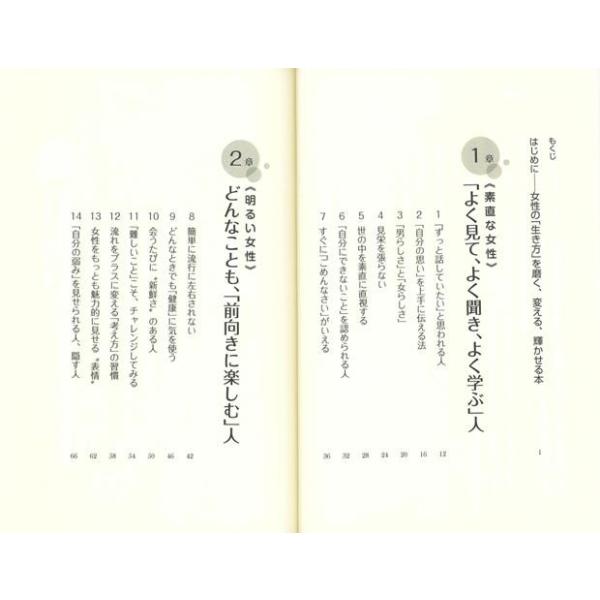 もくじ
はじめに――女性の「生き方」を磨く、変える、輝かせる本 1
1章
《素直な女性》
「よく見て、よく聞き、よく学ぶ」人
1 「ずっと話していたい」と思われる人 12
2 「自分の思い」を上手に伝える法 16
3 「男らしさ」と「女らしさ」 20
4 見栄を張らない 24
5 世の中を素直に直視する 28
6 「自分にできないこと」を認められる人 32
7 すぐに「ごめんなさい」がいえる 36
2章
《明るい女性》
どんなことも、「前向きに楽しむ」人
8 簡単に流行に左右されない 42
9 どんなときでも「健康」に気を使う 46
10 会うたびに〝新鮮さ〟のある人 50
11 「難しいこと」こそ、チャレンジしてみる 54
12 流れをプラスに変える「考え方」の習慣 58
13 女性をもっとも魅力的に見せる〝表情〟 62
14 「自分の弱み」を見せられる人、隠す人 66